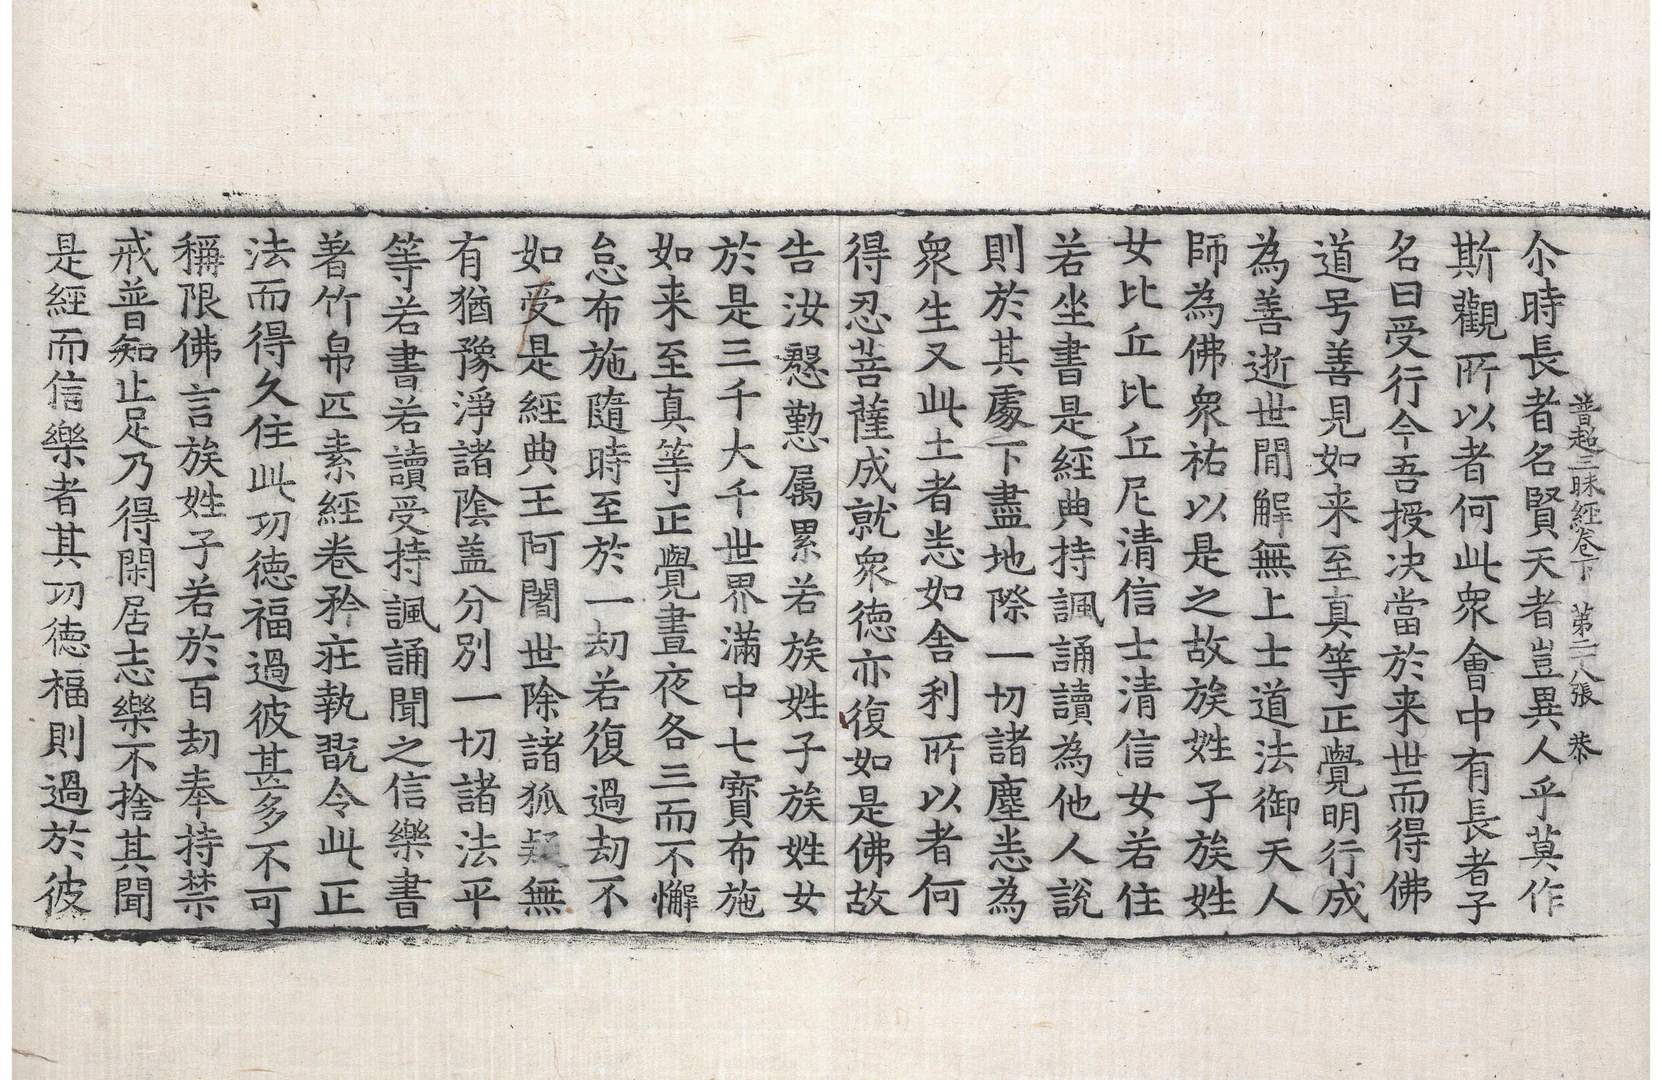 普超三昧經卷下　第二八張　恭
尒時長者名賢天者豈異人乎莫作
斯觀所以者何此衆會中有長者子
名曰受行今吾授决當於来世而得佛
道号善見如来至真等正覺明行成
為善逝世間解無上士道法御天人
師為佛衆祐以是之故族姓子族姓
女比丘比丘尼清信士清信女若住
若坐書是經典持諷誦讀為他人說
則於其處下盡地際一切諸塵悉為
衆生又此土者悉如舍利所以者何
得忍菩薩成就衆德亦復如是佛故
告汝慇懃属累若族姓子族姓女
於是三千大千世界滿中七寶布施
如来至真等正覺晝夜各三而不懈
怠布施隨時至於一劫若復過劫不
如受是經典王阿闍世除諸狐疑無
有猶豫淨諸陰盖分別一切諸法平
等若書若讀受持諷誦聞之信樂書
著竹帛匹素經卷矜莊執翫令此正
法而得久住此功德福過彼甚多不可
稱限佛言族姓子若於百劫奉持禁
戒普知止足乃得閑居志樂不捨其聞
是經而信樂者其功德福則過於彼